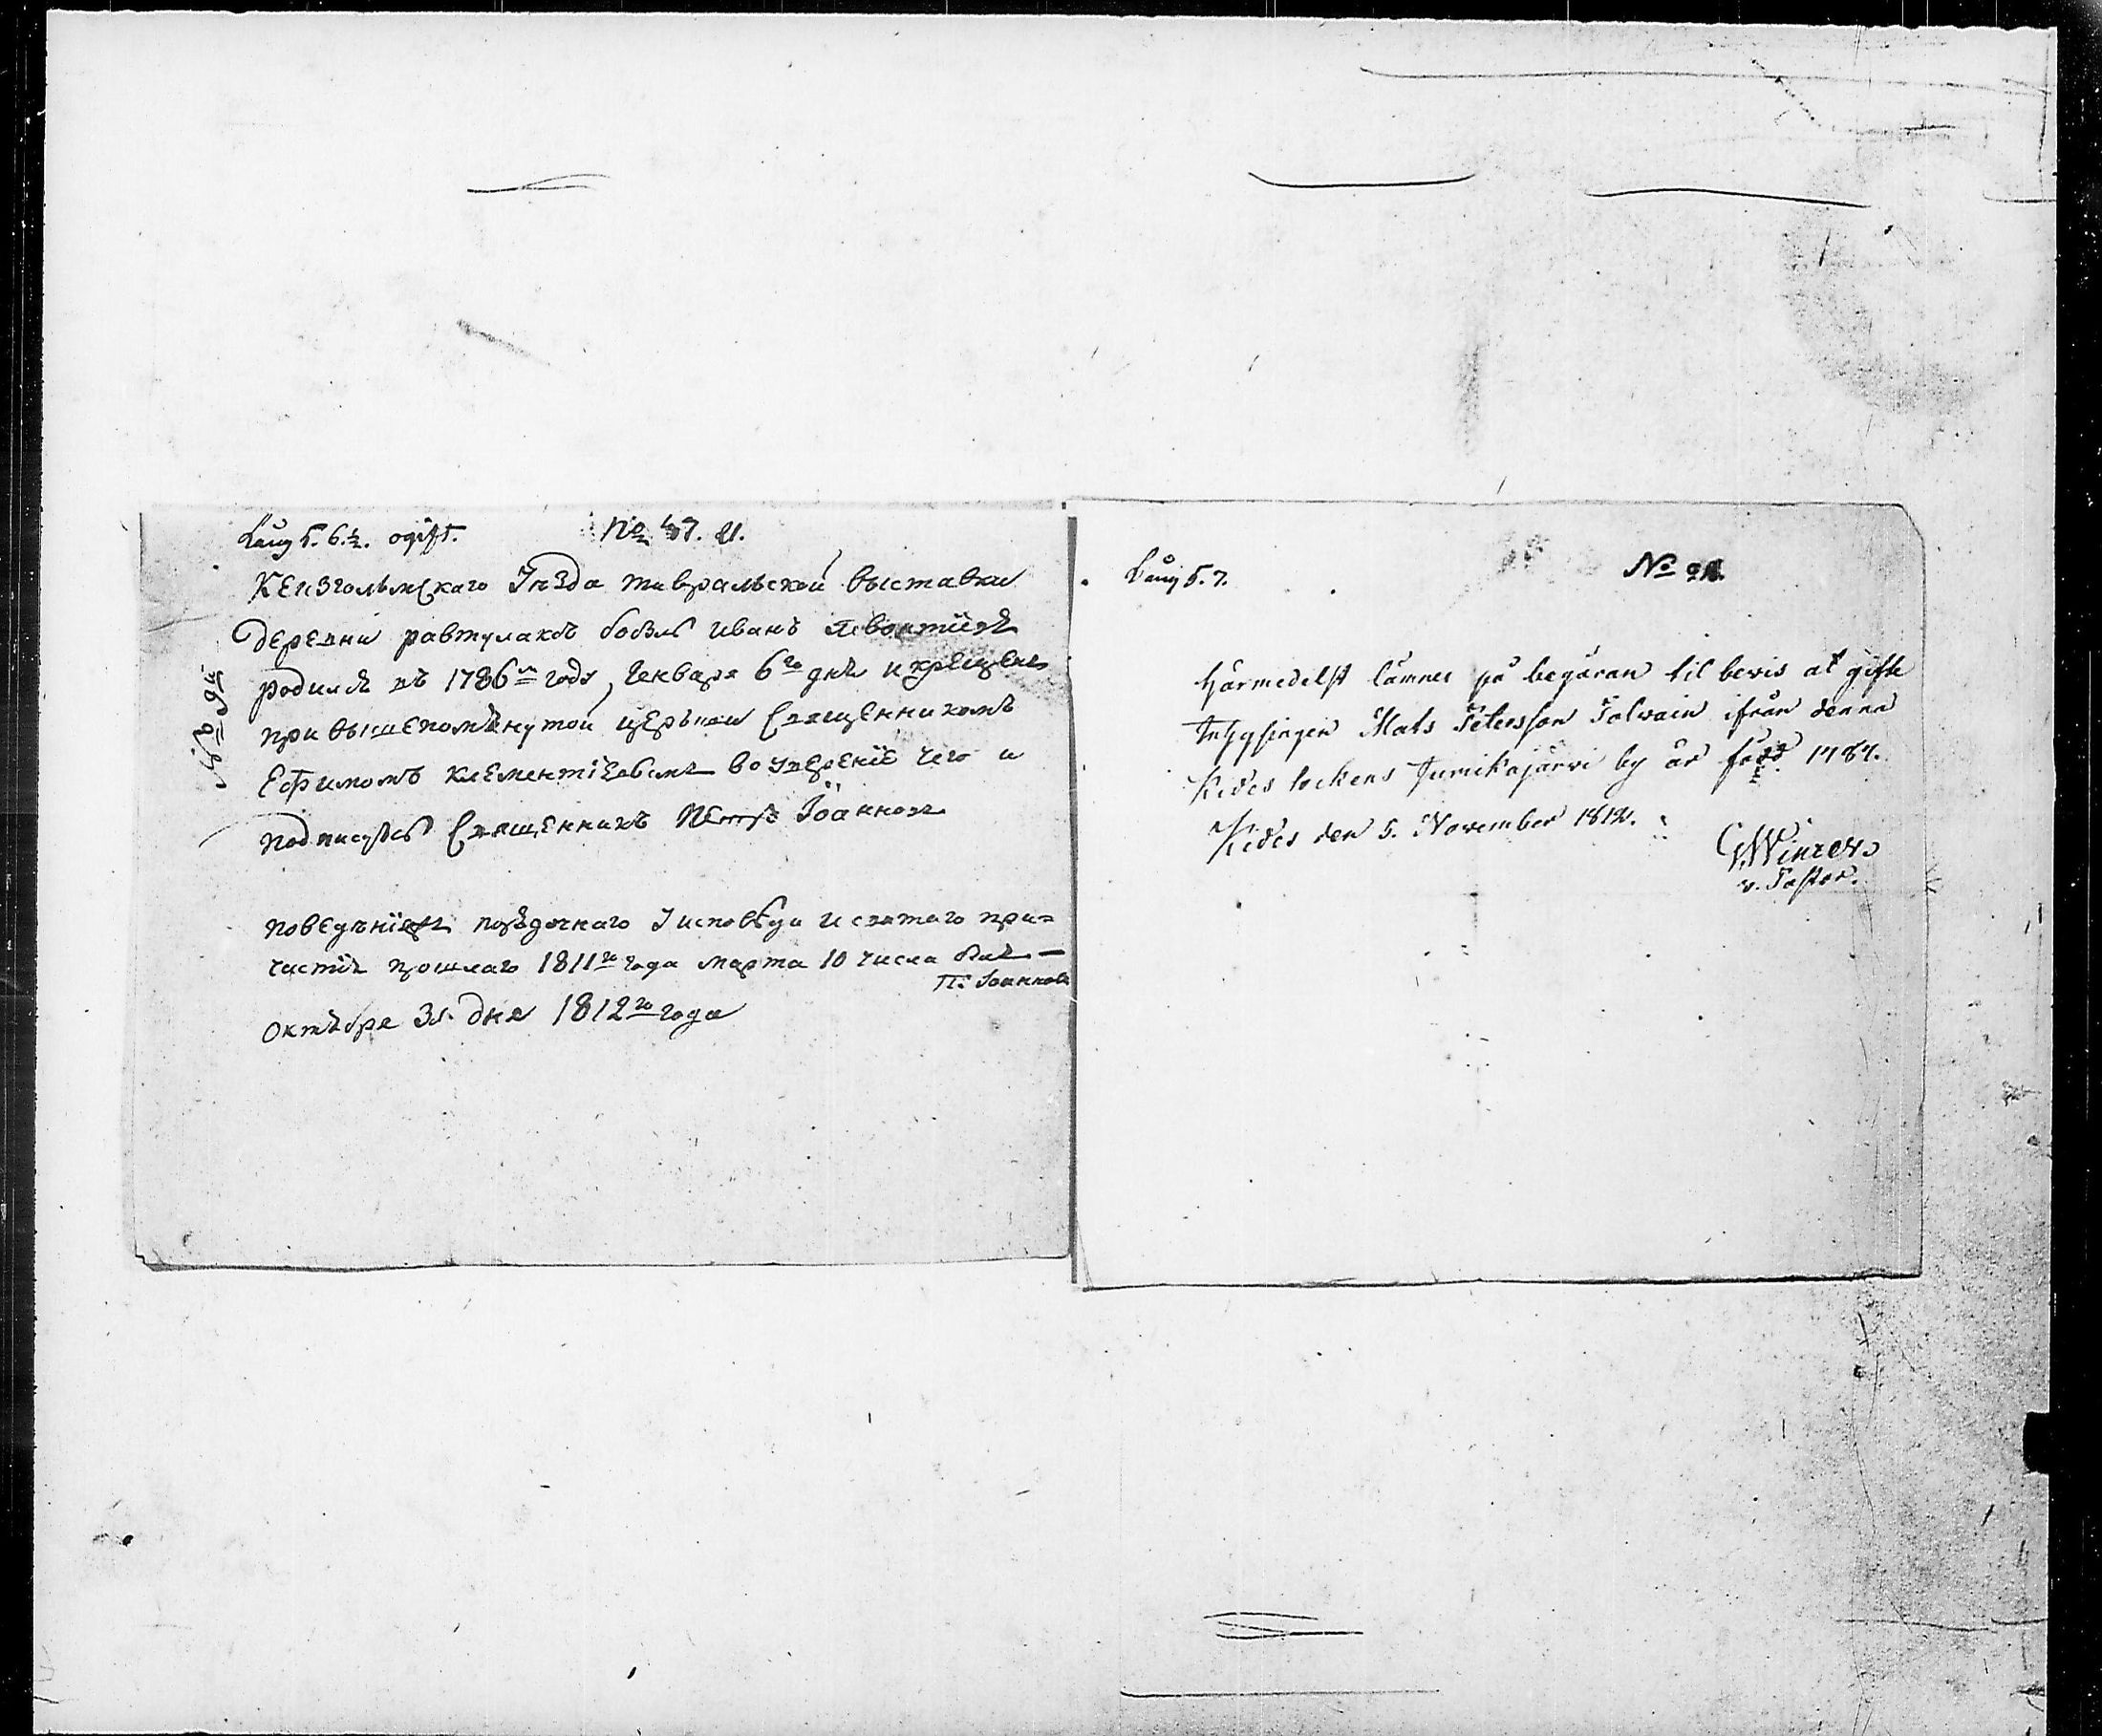 Lång 5. 6.½. ogift.
No 21.
Кейзгольмскаго Уезда тивральской выставки
деревни равтулакс бобыль иванъ
родился въ 1786м году, генваря 6го дня и крещенъ
при вышепомянутой церькви священникомъ
Ефимомъ климентиевымъ во уверение чего и
подписуюсь священникъ петръ Iоаннов
No 69й
исповеди и святаго при=
частия прошлаго 1811го года марта 10 числа былъ —
П: Iоаннов
октября 31. дня 1812го года
Lång 5. 7.
No
Härmedelst lämnes på begäran til bevis at gifte
Inhysingen Mats Petersson Tolvain ifrån denna
Kides Sockens Juurikajärvi by är född 1787.
Kides den 5. November 1812.
v. Pastor.